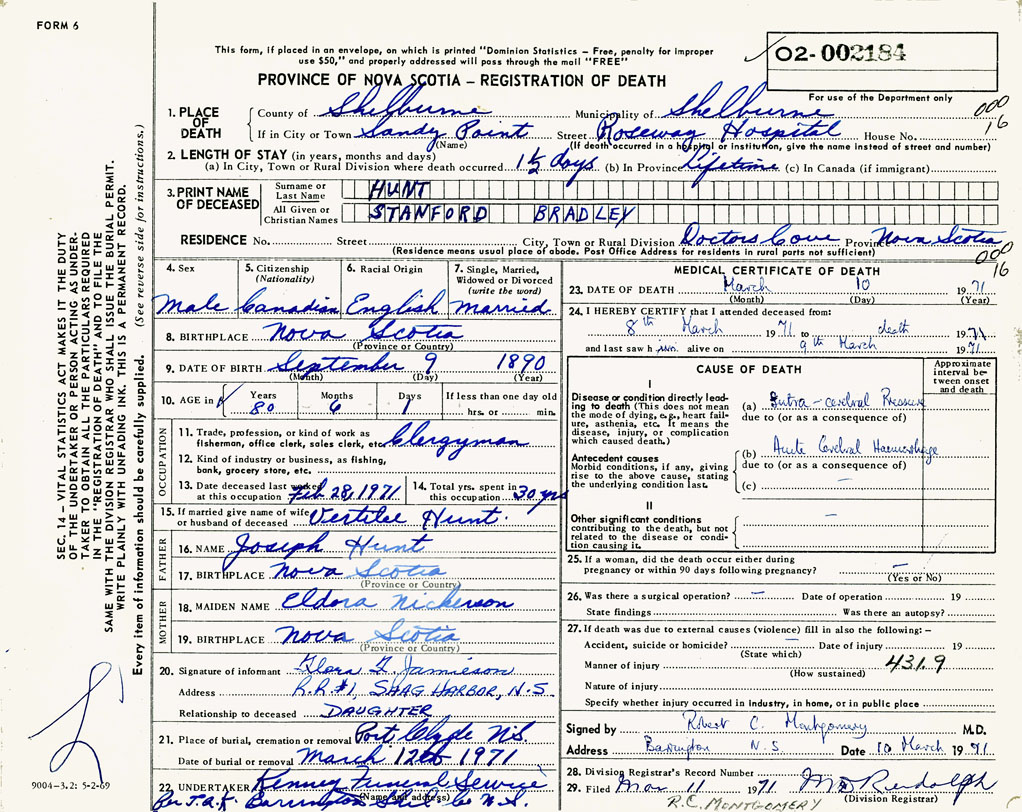 FORM 6
This form, if placed in an envelope, on which is printed "Dominion Statistics – Free, penalty for improper
use $50," and properly addressed will pass through the mail "FREE"
02-002184
PROVINCE OF NOVA SCOTIA – REGISTRATION OF DEATH
For use of the Department only
000
16
1. PLACE OF DEATH
County of Shelburne Municipality of Shelburne
If in City or Town Sandy Point Street Roseway Hospital House No.
(Name) (If death occurred in a hospital or institution, give the name instead of street and number)
2. LENGTH OF STAY (in years, months and days)
(a) In City, Town or Rural Division where death occurred 1½ days (b) In Province Lifetime (c) In Canada (if immigrant)
3. PRINT NAME OF DECEASED
Surname or Last Name HUNT
All Given or Christian Names STANFORD BRADLEY
RESIDENCE No. Street City, Town or Rural Division Doctors Cove Province Nova Scotia
(Residence means usual place of abode. Post Office Address for residents in rural parts not sufficient)
000
16
4. Sex 5. Citizenship (Nationality) 6. Racial Origin 7. Single, Married, Widowed or Divorced (write the word)
Male Canadian English Married
8. BIRTHPLACE Nova Scotia
(Province or Country)
9. DATE OF BIRTH September 9 1890
(Month) (Day) (Year)
10. AGE in Years Months Days If less than one day old
80 6 1 hrs. or min.
OCCUPATION
11. Trade, profession, or kind of work as
fisherman, office clerk, sales clerk, etc. Clergyman
12. Kind of industry or business, as fishing,
bank, grocery store, etc.
13. Date deceased last worked
at this occupation Feb 28, 1971
14. Total yrs. spent in
this occupation 30 yrs
15. If married give name of wife
or husband of deceased Hunt.
FATHER
16. NAME Joseph Hunt
17. BIRTHPLACE Nova Scotia
(Province or Country)
MOTHER
18. MAIDEN NAME Eldora Nickerson
19. BIRTHPLACE Nova Scotia
(Province or Country)
20. Signature of informant Jamieson
Address R.R #1, SHAG HARBOR, N.S.
Relationship to deceased DAUGHTER
21. Place of burial, cremation or removal Port Clyde N.S.
Date of burial or removal March 12th 1971
22. UNDERTAKER Kenney Funeral Service
(Name and address)
Barrington N.S.
MEDICAL CERTIFICATE OF DEATH
23. DATE OF DEATH March 10 1971
(Month) (Day) (Year)
24. I HEREBY CERTIFY that I attended deceased from:
8th March 1971 to death 1971
and last saw him alive on 9th March 1971
CAUSE OF DEATH
Approximate interval between onset and death
I
Disease or condition directly leading to death (This does not mean the mode of dying, e.g., heart failure, asthenia, etc. It means the disease, injury, or complication which caused death.)
(a) Intra-cerebral Pressure
due to (or as a consequence of)
Antecedent causes
Morbid conditions, if any, giving rise to the above cause, stating the underlying condition last.
(b) Acute Cerebral Haemorrhage
due to (or as a consequence of)
(c) –
II
Other significant conditions
contributing to the death, but not related to the disease or condition causing it.
–
25. If a woman, did the death occur either during
pregnancy or within 90 days following pregnancy? –
(Yes or No)
26. Was there a surgical operation? – Date of operation 19
State findings Was there an autopsy?
27. If death was due to external causes (violence) fill in also the following: –
Accident, suicide or homicide? – Date of injury 19
(State which)
Manner of injury 431.9
(How sustained)
Nature of injury
Specify whether injury occurred in Industry, in home, or in public place
Signed by Robert C. Montgomery M.D.
Address Barrington N.S Date 10 March 1971
28. Division Registrar's Record Number
29. Filed Mar 11 1971
(Division Registrar)
R.C. MONTGOMERY
SEC. 14 – VITAL STATISTICS ACT MAKES IT THE DUTY
OF THE UNDERTAKER OR PERSON ACTING AS UNDER-
TAKER TO OBTAIN ALL THE PARTICULARS REQUIRED
IN THE "REGISTRATION OF DEATH" AND TO FILE THE
SAME WITH THE DIVISION REGISTRAR WHO SHALL ISSUE THE BURIAL PERMIT.
WRITE PLAINLY WITH UNFADING INK. THIS IS A PERMANENT RECORD.
Every item of information should be carefully supplied. (See reverse side for instructions.)
9004–3.2: 5-2-69